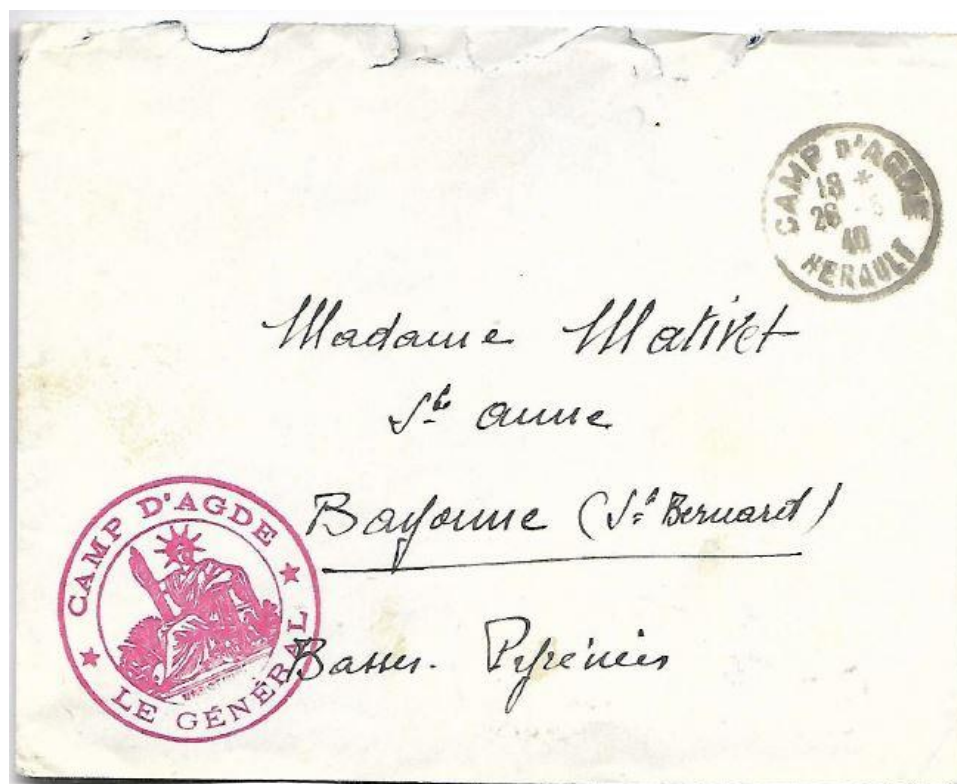 CAMP D'AGDE
18 *
26 -5
40
HERAULT
Madame Mativet
Ste anne
Bayonne (St Bernard)
Basses-Pyrénées
CAMP D'AGDE
LE GÉNÉRAL